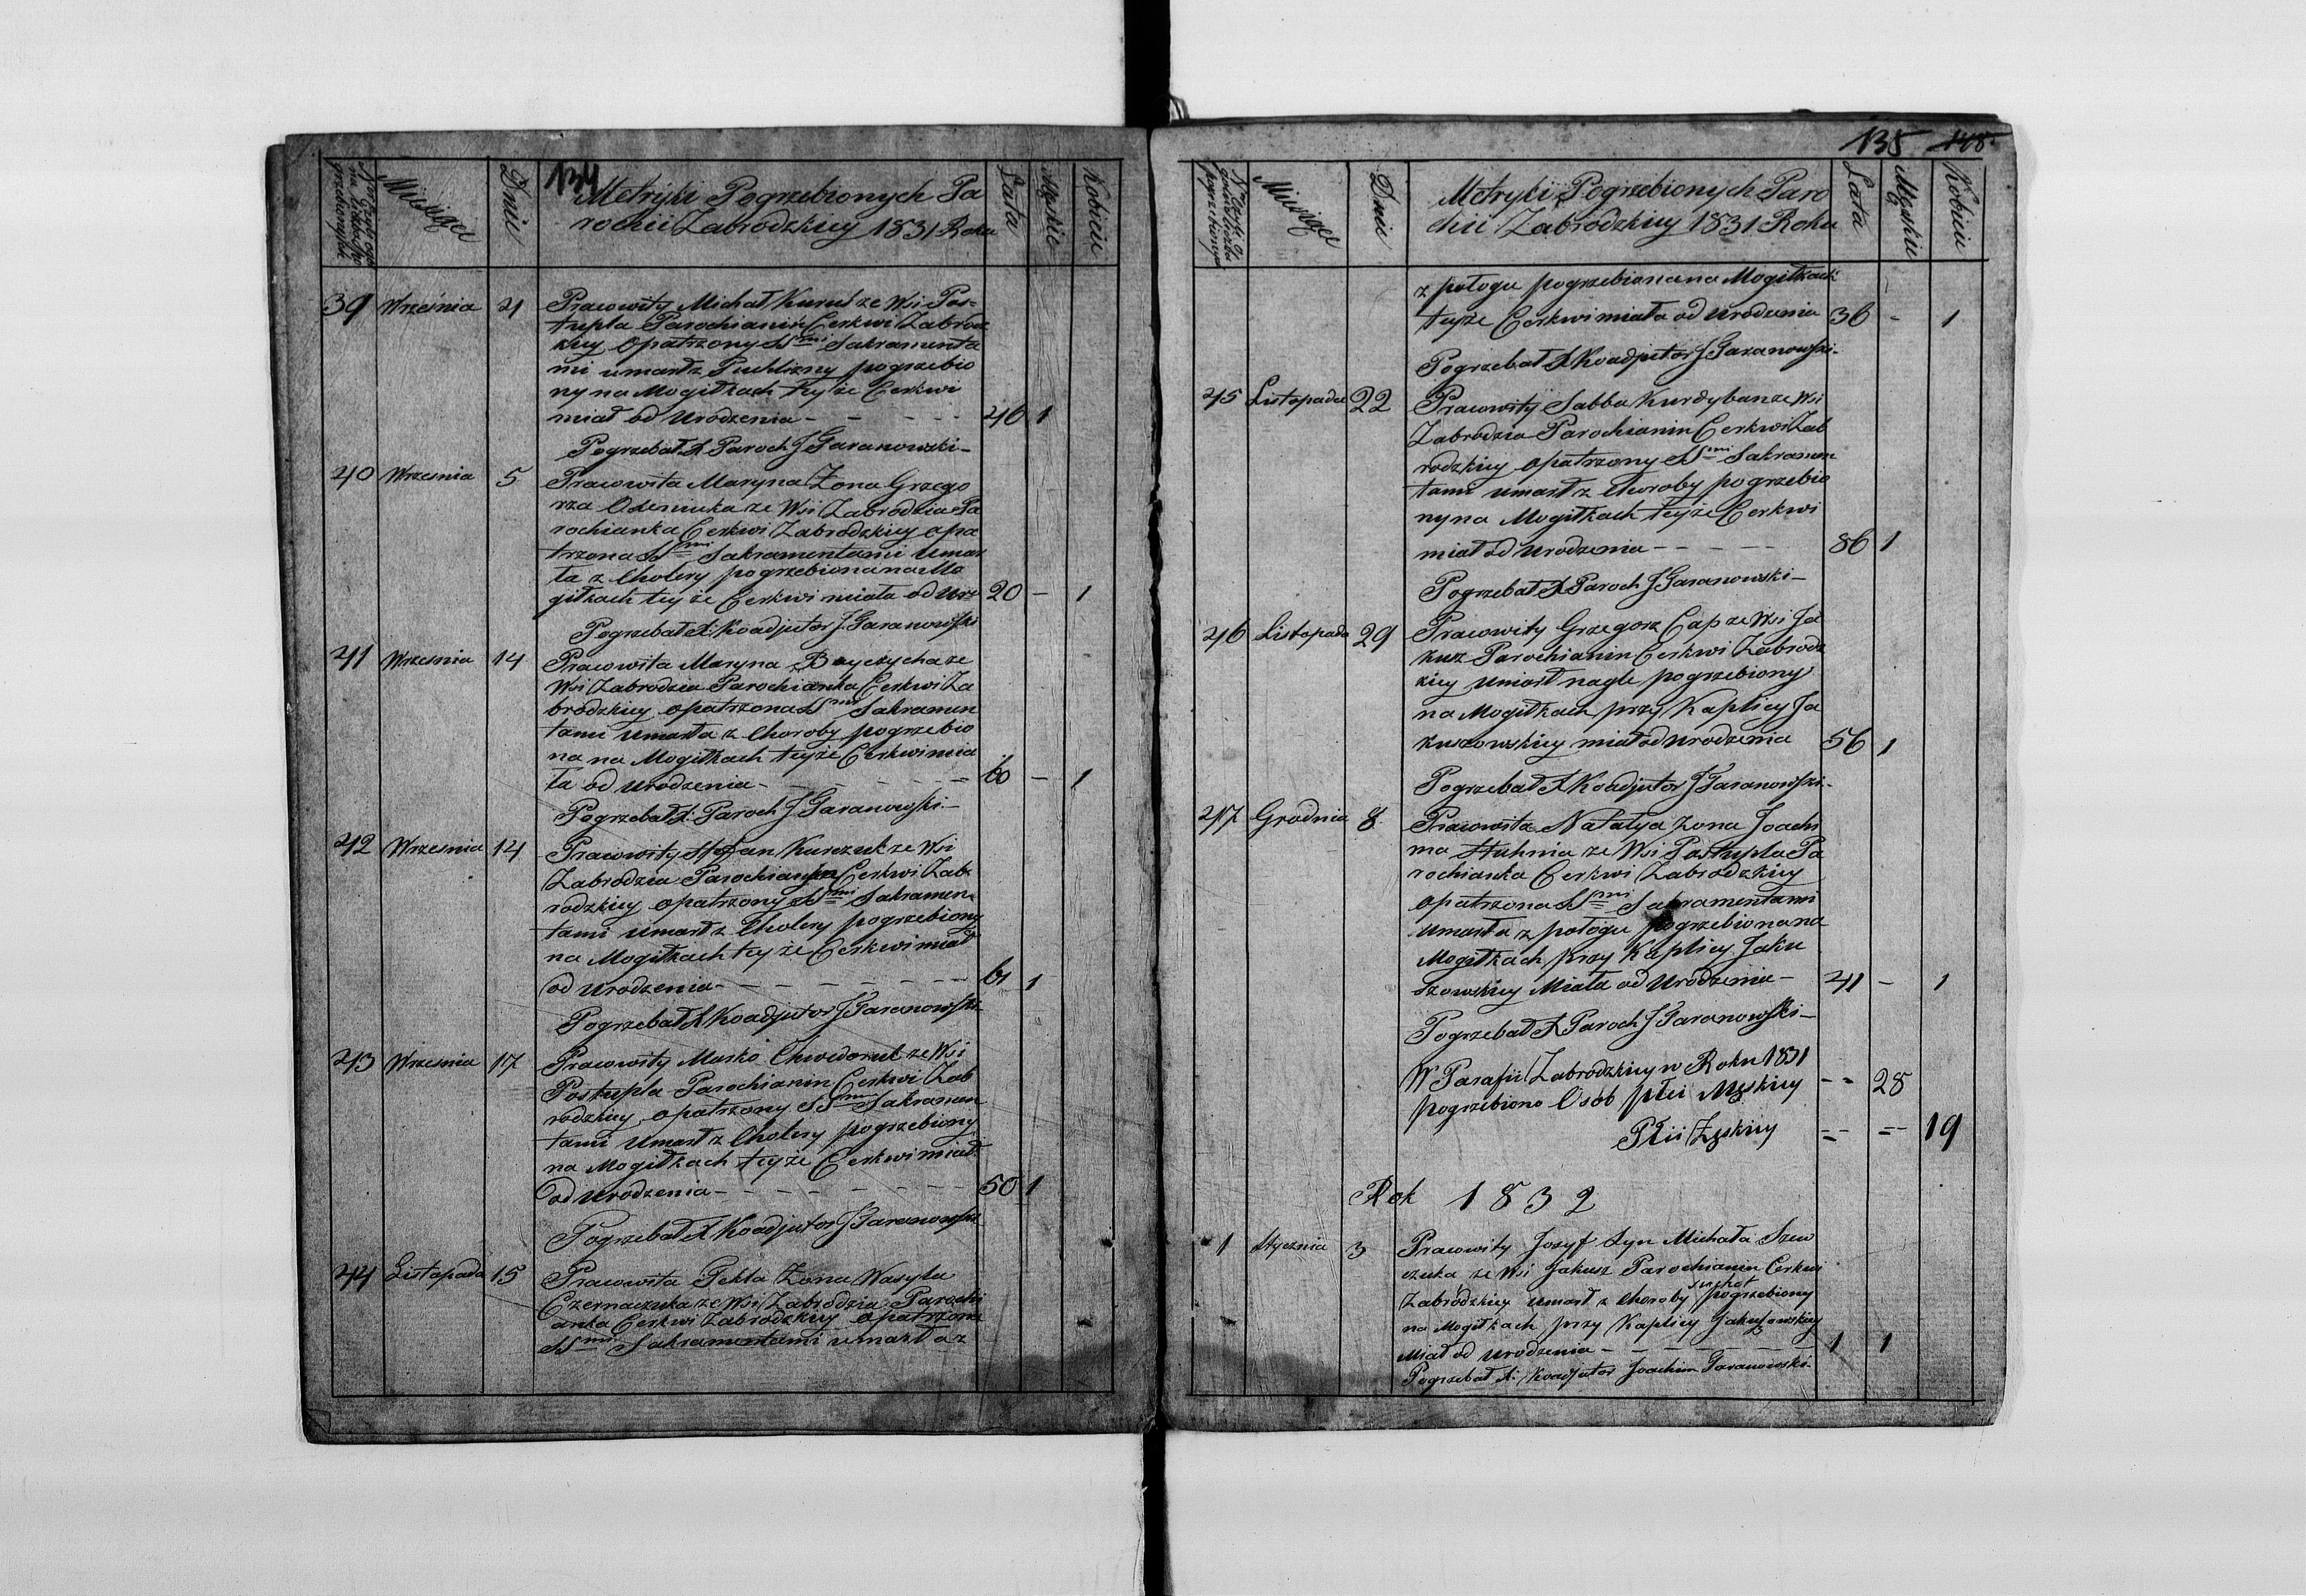 134
Miesiące
Dnie
Metryki Pogrzebionych Pa
rochii Zabrodzkiey 1831 Roku
Lata
Męskie
Kobiece
39 Września 21 Pracowity Michał Kurul ze Wsi Pos-
tupla Parochianin Cerkwi Zabrodz
kiey Opatrzony SSmi Sakramenta
mi umarł z Puchlizny pogrzebio
ny na Mogiłkach teyże Cerkwi
miał od Urodzenia - - - - - 46 1
Pogrzebał X Paroch J Garanowski -
40 Wrzesnia 5 Pracowita Maryna Żona Grzego
rza ze Wsi Zabrodzia Pa
rochianka Cerkwi Zabrodzkiey opa
trzona SSmi Sakramentami Umar
ła z Cholery pogrzebiona na Mo
giłkach teyże Cerkwi miała od Urz 20 - 1
Pogrzebał X: Koadjutor J. Garanowski
41 Wrzesnia 14 Pracowita Maryna ze
Wsi Zabrodzia Parochianka Cerkwi Za
brodzkiey opatrzona SSmi Sakramen
tami Umarła z Choroby pogrzebio
na na Mogiłkach teyże Cerkwi mia
ła od Urodzenia - - - - - 60 - 1
Pogrzebał X: Paroch J Garanowski -
42 Wrzesnia 14 Pracowity Stefan ze Wsi
Zabrodzia Parochianin Cerkwi Zab
rodzkiey opatrzony SSmi Sakramen
tami Umarł z Cholery pogrzebiony
na Mogiłkach teyże Cerkwi miał
od Urodzenia - - - - - - 61 1
Pogrzebał X Koadjutor J Garanowski
43 Wrzesnia 17 Pracowity Masko Chwedoruk ze Wsi
Postupla Parochianin Cerkwi Zab
rodzkiey opatrzony SSmi Sakramen
tami Umarł z Cholery pogrzebiony
na Mogiłkach teyże Cerkwi miał
od Urodzenia - - - - - - 50 1
Pogrzebał X Koadjutor J Garanowski
44 Listopada 15 Pracowita Tekla Żona Wasyla
Czernaczuka ze Wsi Zabrodzia Parochi
anka Cerkwi Zabrodzkiey opatrzona
SSmi Sakramentami umarła z
135 148
Miesiące
Dnie
Metryki Pogrzebionych Paro
chii Zabrodzkiey 1831 Roku
Lata
Męskie
Kobiece
z połogu pogrzebiona na Mogiłkach
teyże Cerkwi miała od Urodzenia 36 - 1
Pogrzebał X Koadjutor J Garanowski -
45 Listopada 22 Pracowity Sabba Kurdyban ze Wsi
Zabrodzia Parochianin Cerkwi Zab
rodzkiey opatrzony SSmi Sakramen
tami Umarł z Choroby pogrzebio
ny na Mogiłkach teyże Cerkwi
miał od Urodzenia - - - - - 86 1
Pogrzebał X Paroch J Garanowski -
46 Listopada 29 Pracowity Grzegorz Cap ze Wsi Ja
kusz Parochianin Cerkwi Zabrodz
kiey Umarł nagle pogrzebiony
na Mogiłkach przy Kaplicy Ja
kuszowskiey miał od Urodzenia 56 1
Pogrzebał X Koadjutor J Garanowski -
47 Grodnia 8 Pracowita Natalya Żona Joachi
ma ze Wsi Postupla Pa
rochianka Cerkwi Zabrodzkiey
opatrzona SSmi Sakramentami
Umarła z połogu pogrzebiona na
Mogiłkach przy Kaplicy Jaku
szowskiey Miała od Urodzenia - 41 - 1
Pogrzebał X Paroch J Garanowski -
W Parafii Zabrodzkiey w Roku 1831
pogrzebiono Osób płci Męskiey - - 28
Płci Żęskiey 19
Rok 1832
1 Stycznia 3 Pracowity Jozyf Syn Michała Szew
czuka ze Wsi Jakusz Parochianin Cerkwi
Zabrodzkiey Umarł z Choroby suchot pogrzebiony
na Mogiłkach przy Kaplicy Jakuszowskiey
Miał od Urodzenia - - - - - 1 1
Pogrzebał X: Koadjutor Joachim Garanowski